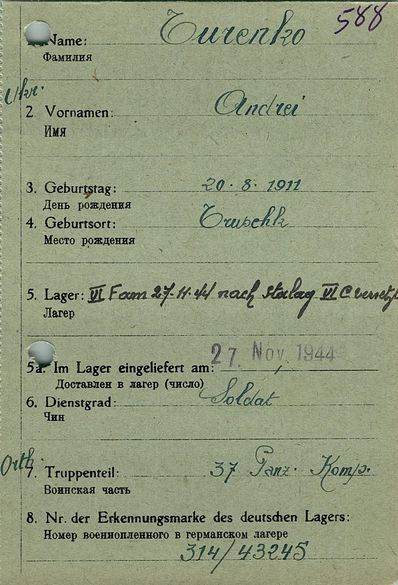 588
1. Name: Turenko
Фамилия
Ukr.
2. Vornamen: Andrei
Имя
3. Geburtstag: 20·8·1911
День рождения
4. Geburtsort: Truschk
Место рождения
5. Lager: VI F am 27.11.44 nach Stalag VI C versetzt
Лагер
5a. Im Lager eingeliefert am: 27. Nov. 1944
Доставлен в лагер (число)
6. Dienstgrad: Soldat
Чин
Orth.
7. Truppenteil: 37 Panz. Komp.
Воинская часть
8. Nr. der Erkennungsmarke des deutschen Lagers:
Номер военнопленного в германском лагере
314/43245